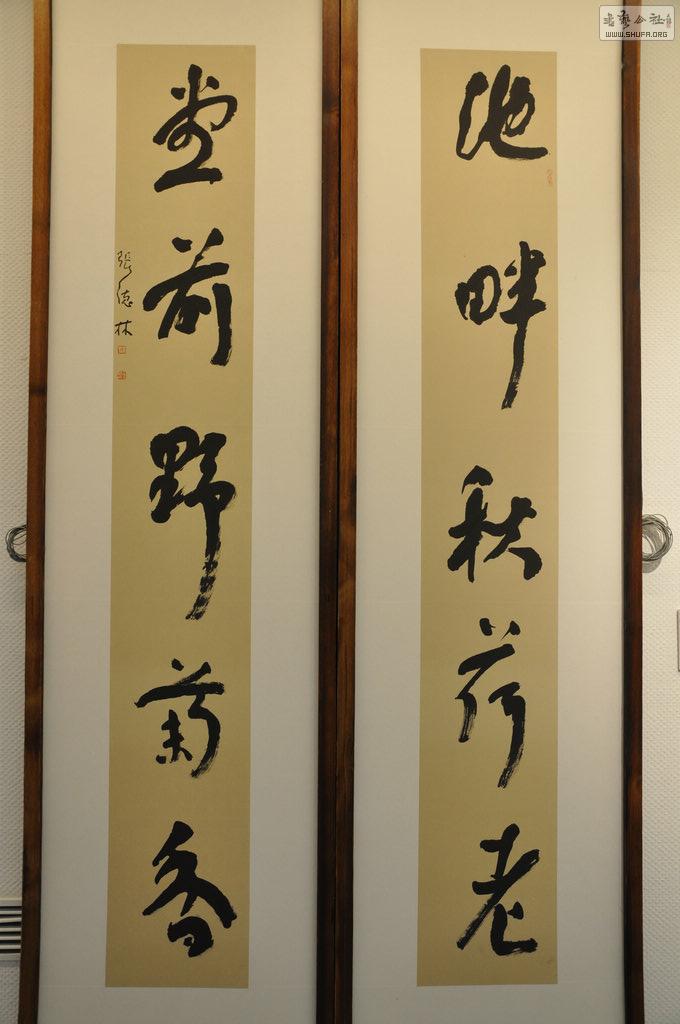 池畔秋荷老
堂前野菊香
張德林
書藝公社
WWW.SHUFA.ORG